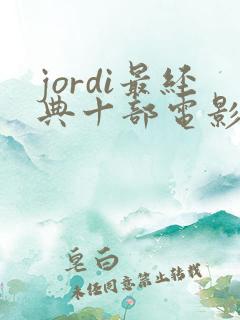 jordi最经
典十部电影
皂白
未经同意禁止转载